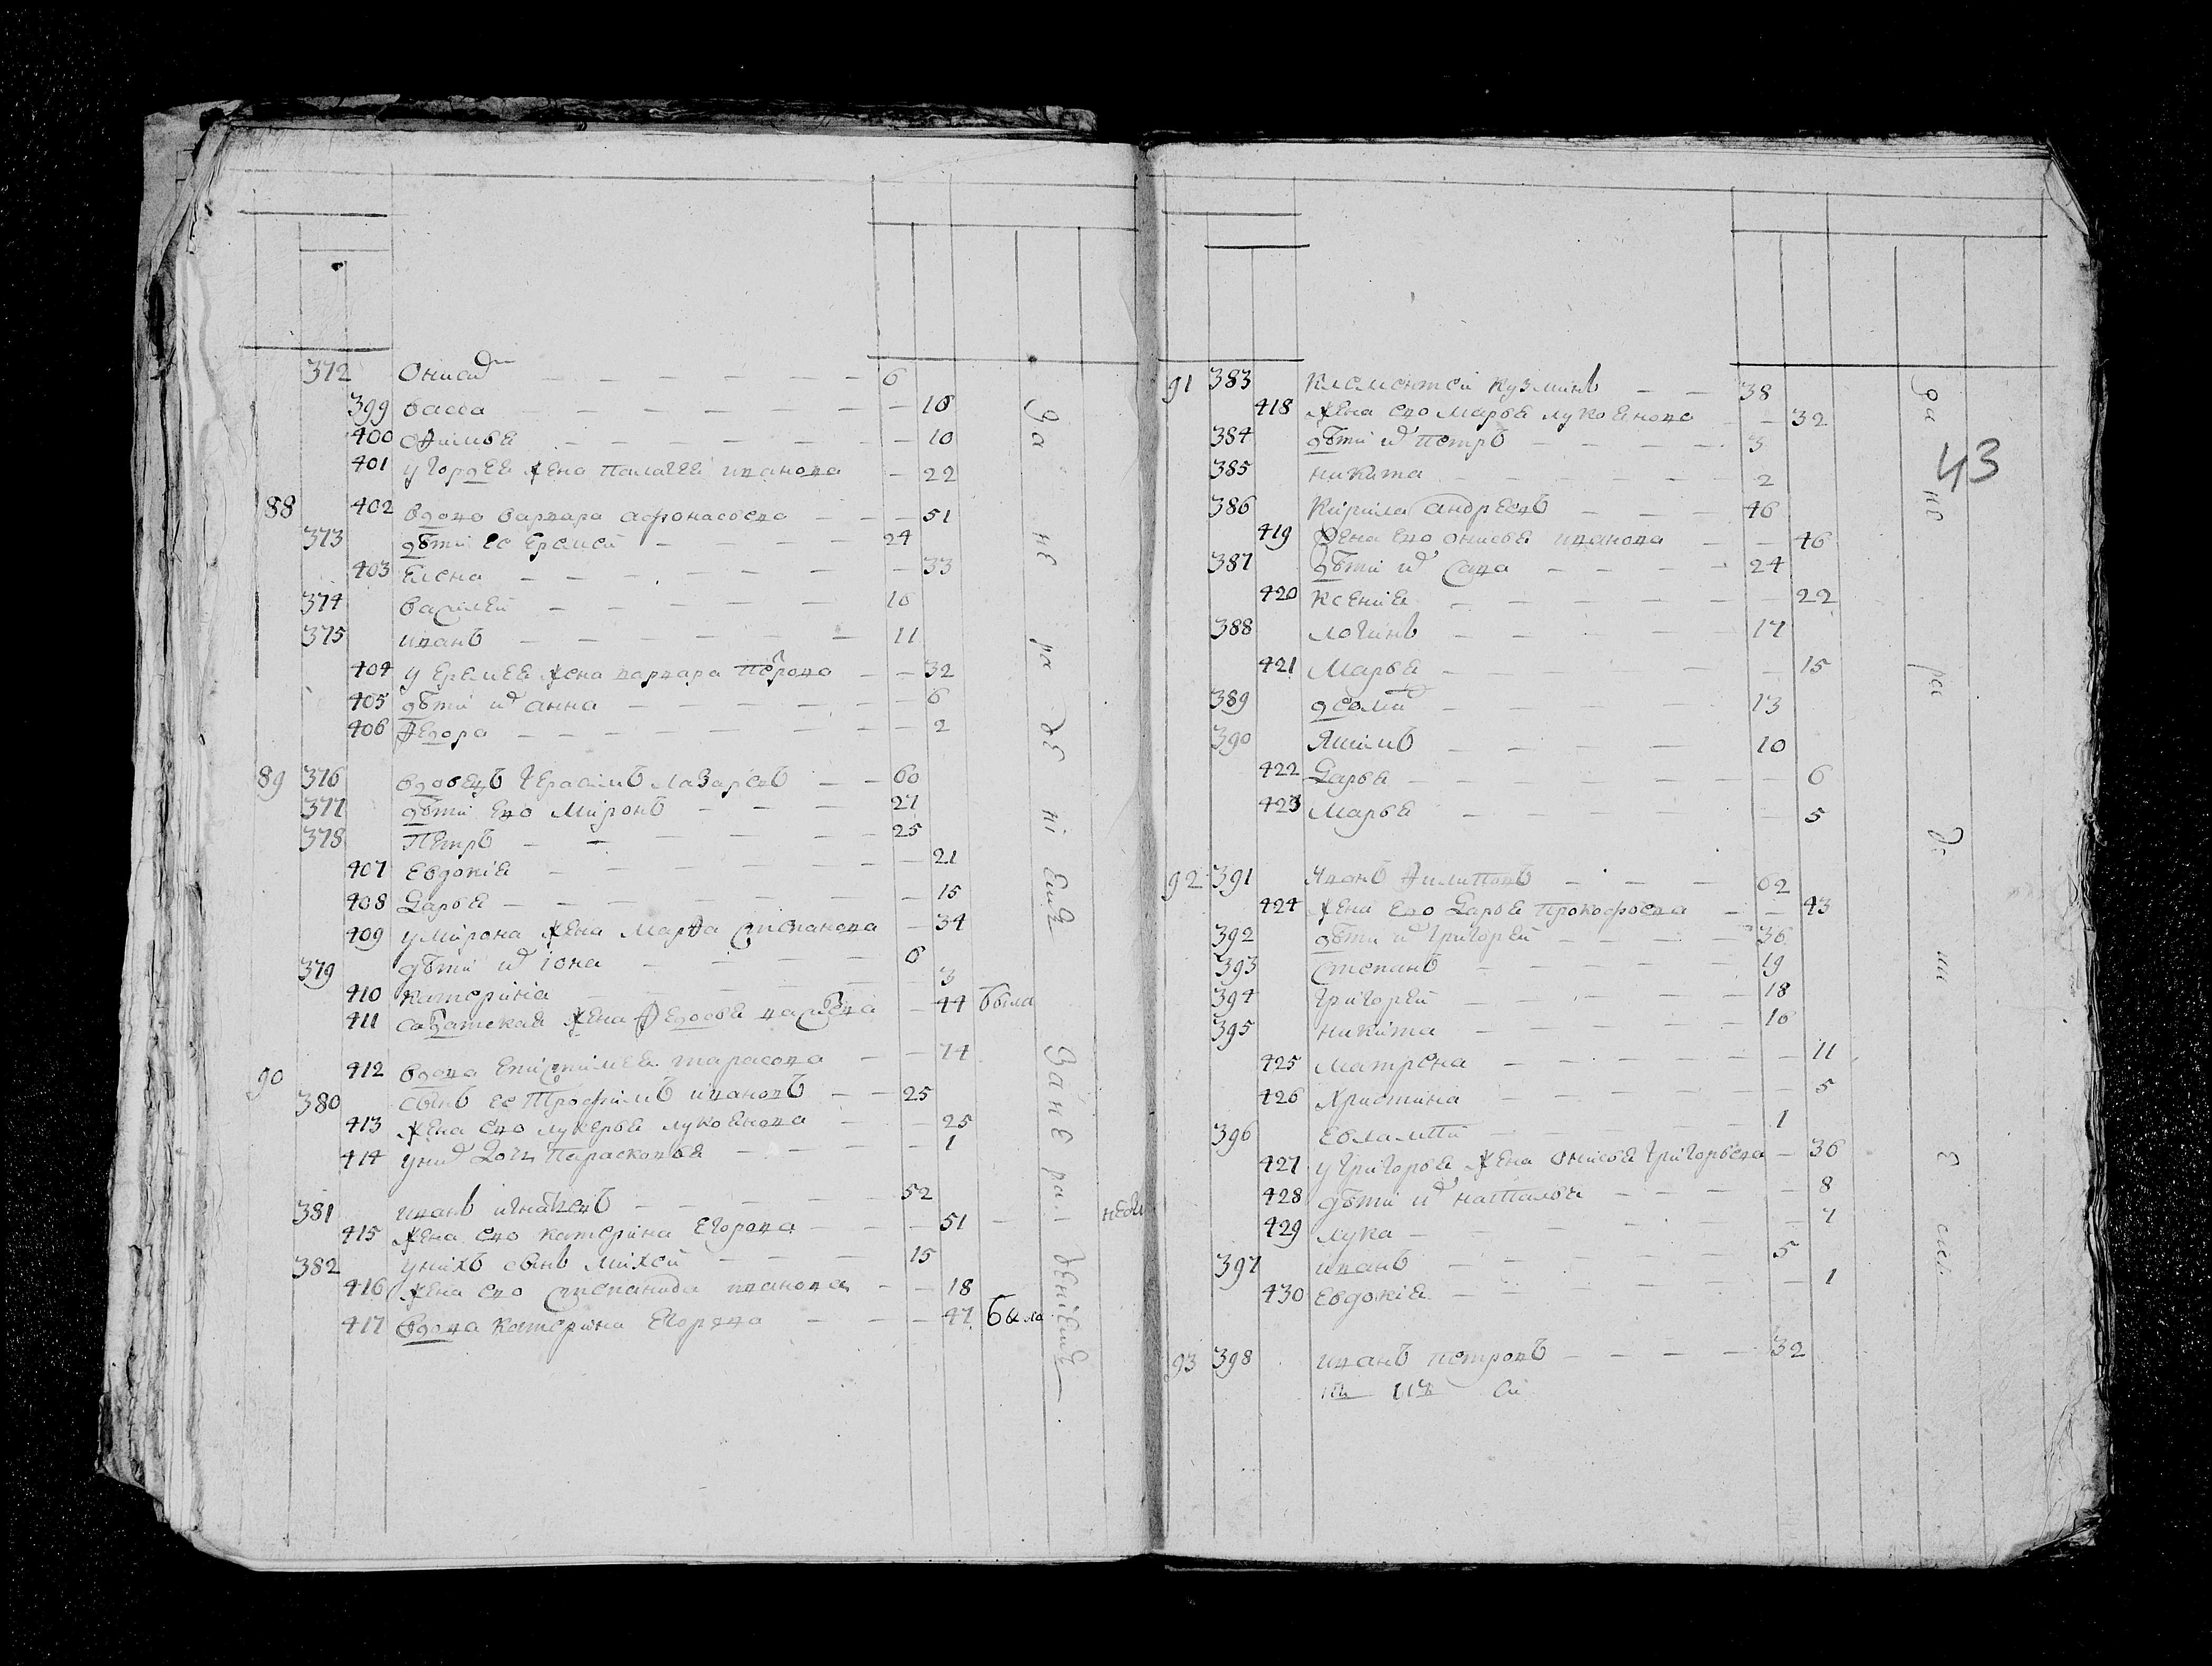 372 Онисим 6
399 васса 16
400 офимья 10
401 у Гордея жена Палагея иванова 22
88 402 вдова варвара афонасьева 51
373 дѣти ее Еремей 24
403 Елена 33
374 василей 16
375 иванъ 11
404 у Еремея жена варвара Петрова 32
405 дѣти их анна 6
406 Федора 2
89 376 вдовецъ Герасимъ Лазаревъ 60
377 дѣти его Миронъ 27
378 Петръ 25
407 Евдокия 21
408 Дарья 15
409 у Мирона жена Марфа степанова 34
379 дѣти их иона 6
410 катериніа 3
411 салдатская жена Федосья 44 была
90 412 вдова тарасова 74
380 сынъ ее Трофимъ ивановъ 25
413 жена его лукерья лукоянова 25
414 у них дочь Парасковья 1
381 иванъ игнатьевъ 52
415 жена его катерина Егорова 51
382 у нихъ сынъ Михей 15
416 жена его степанида иванова 18
417 вдова катерина Егорова 47 была
За не ра де ні емъ
За не ра дениемъ
43
91 383 клементей кузминъ 38
418 жена его марья лукоянова 32
384 дѣти их петръ 3
385 никита 2
386 кирила андреевъ 46
419 жена его онисья иванова 46
387 дѣти их сава 24
420 ксения 22
388 логинъ 17
421 Марья 15
389 13
390 Якимъ 10
422 Дарья 6
423 Марья 5
92 391 иванъ Филиповъ 62
424 жена его Дарья Прокофьева 43
392 дѣти их григорей 36
393 степанъ 19
394 григорей 18
395 никита 16
425 матрена 11
426 Христина 5
396 Евлампи 1
427 у григорья жена онисья григорьева 36
428 дѣти их наталья 8
429 лука 7
397 иванъ 5
430 Евдокия 1
93 398 иванъ петровъ 32
За не ра де ни е